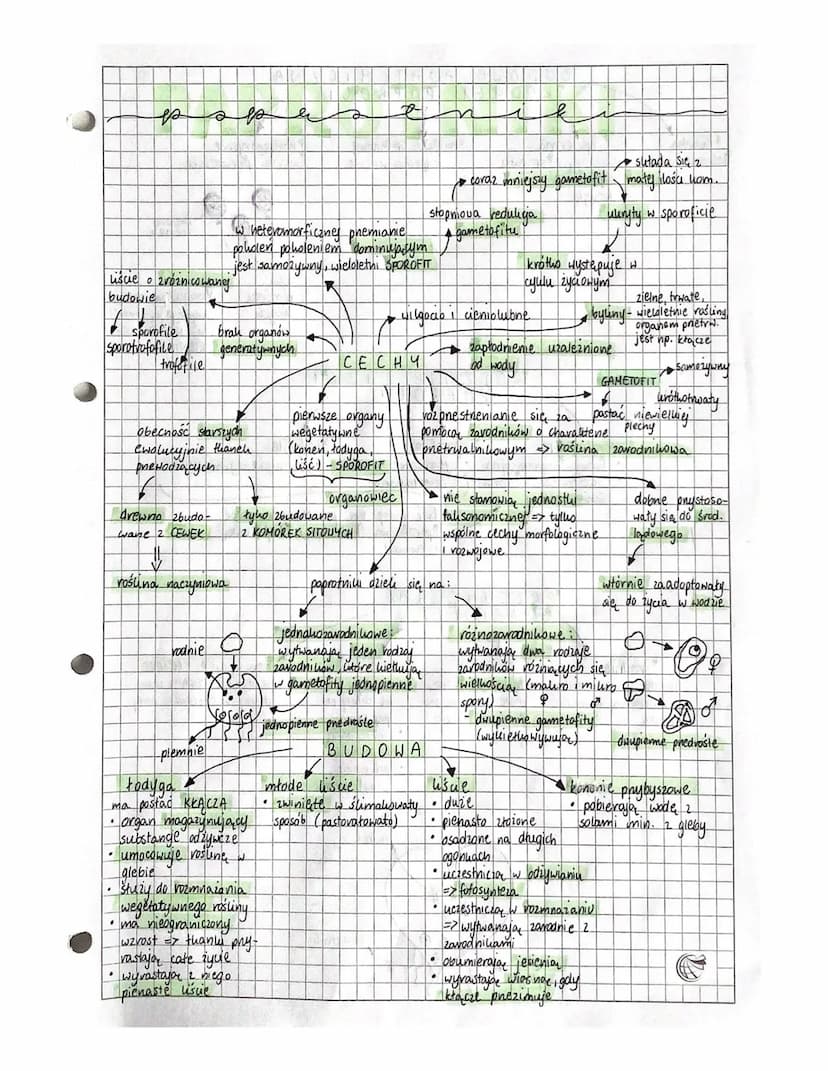 paprotniki
składa się z
małej ilości kom.
coraz mniejszy gametofit
stopniowa redukcja
gametofitu
ukryty w sporoficie
krótko występuje w
cyklu życiowym
W heteromorficznej przemianie
pokoleń pokoleniem dominującym
jest samożywny, wieloletni SPOROFIT
liście o zróżnicowanej
budowie
sporofile
sporotrofofile
trofofile
brak organów
generatywnych
wilgocio i cieniolubne
byliny- zielne, trwałe,
wieloletnie rośliny
organem przetrw.
jest np. kłącze
CECHY
zapłodnienie uzależnione
od wody
GAMETOFIT
samożywny
krótkotrwały
postać niewielkiej
plechy
obecność starszych
ewolucyjnie tkanek
przewodzących
pierwsze organy
wegetatywne
(korzeń, łodyga,
liść) - SPOROFIT
organowiec
rozprzestrzenianie się za
pomocą zarodników o charakterze
przetrwalnikowym => roślina zarodnikowa
drewno zbudo-
wane z CEWEK
roślina naczyniowa
łyko zbudowane
z KOMÓREK SITOWYCH
nie stanowią jednostki
taksonomicznej => tylko
wspólne cechy morfologiczne
i rozwojowe
dobrze przystoso-
wały się do środ.
lądowego
wtórnie zaadoptowały
się do życia w wodzie
paprotniki dzieli się na:
jednakozarodnikowe:
wytwarzają jeden rodzaj
zarodników, które kiełkują
w gametofity jednopienne
rodnie
plemnie
jednopienne przedrośle
różnozarodnikowe:
wytwarzają dwa rodzaje
zarodników różniących się
wielkością (makro i mikro
spory) ♀ ♂
- dwupienne gametofity
(wykiełkowywują)
♀
♂
dwupienne przedrośle
BUDOWA
łodyga
ma postać KŁĄCZA
• organ magazynujący
substancje odżywcze
• umocowuje roślinę w
glebie
• służy do rozmnażania
wegetatywnego rośliny
• ma nieograniczony
wzrost => tkanki przy-
rastają całe życie
• wyrastają z niego
pierzaste liście
młode liście
• zwinięte w ślimakowaty
sposób (pastorałowato)
liście
• duże
• pierzasto złożone
• osadzone na długich
ogonkach
• uczestniczą w odżywianiu
=> fotosynteza
• uczestniczą w rozmnażaniu
=> wytwarzają zarodnie z
zarodnikami
• obumierają jesienią
• wyrastają wiosną, gdy
kłącze przezimuje
korzenie przybyszowe
• pobierają wodę z
solami min. z gleby